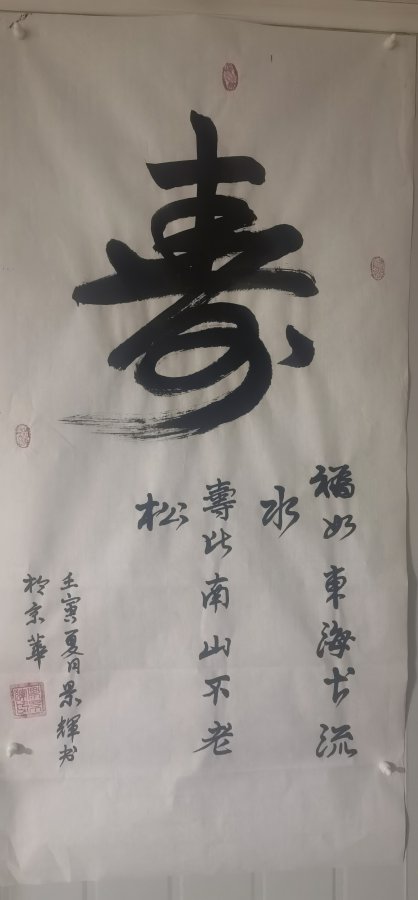 寿
福如東海长流
水
壽比南山不老
松
壬寅夏月景輝书
於京華